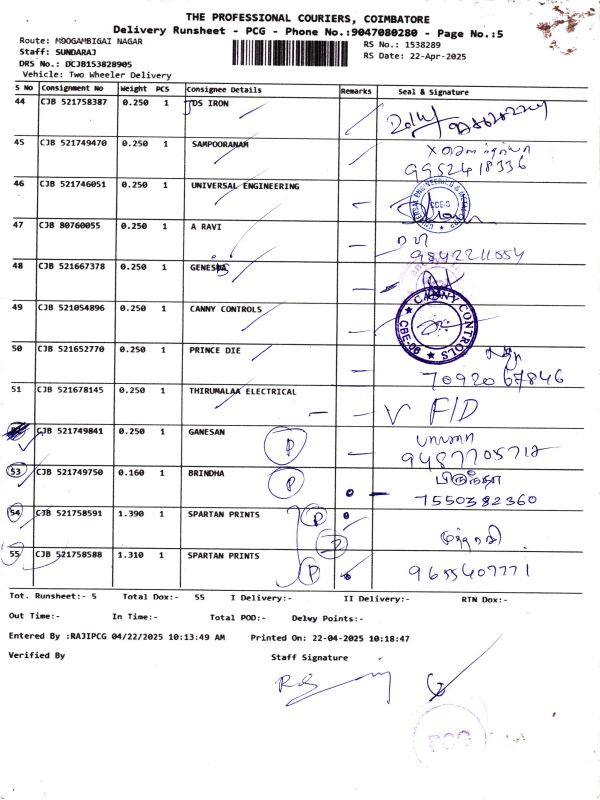 THE PROFESSIONAL COURIERS, COIMBATORE
Delivery Runsheet - PCG - Phone No.:9047080280 - Page No.:5
Route: MOOGAMBIGAI NAGAR
RS No.: 1538289
Staff: SUNDARAJ
RS Date: 22-Apr-2025
DRS No.: DCJB153828905
Vehicle: Two Wheeler Delivery
S No Consignment No Weight PCS Consignee Details Remarks Seal & Signature
44 CJB 521758387 0.250 1 JDS IRON
45 CJB 521749470 0.250 1 SAMPOORANAM
9952418336
46 CJB 521746051 0.250 1 UNIVERSAL ENGINEERING
47 CJB 80760055 0.250 1 A RAVI
ரவி
9842211054
48 CJB 521667378 0.250 1
49 CJB 521054896 0.250 1 CANNY CONTROLS
CANNY CONTROLS
CBE-06
50 CJB 521652770 0.250 1 PRINCE DIE
7092067846
51 CJB 521678145 0.250 1 THIRUMALAA ELECTRICAL
V F/D
CJB 521749841 0.250 1 GANESAN P
9487705712
53 CJB 521749750 0.160 1 BRINDHA P
பிருந்தா
7550382360
54 CJB 521758591 1.390 1 SPARTAN PRINTS P
2
55 CJB 521758588 1.310 1 SPARTAN PRINTS P
9655407771
Tot. Runsheet:- 5 Total Dox:- 55 I Delivery:- II Delivery:- RTN Dox:-
Out Time:- In Time:- Total POD:- Delvy Points:-
Entered By :RAJIPCG 04/22/2025 10:13:49 AM Printed On: 22-04-2025 10:18:47
Verified By Staff Signature
PCG